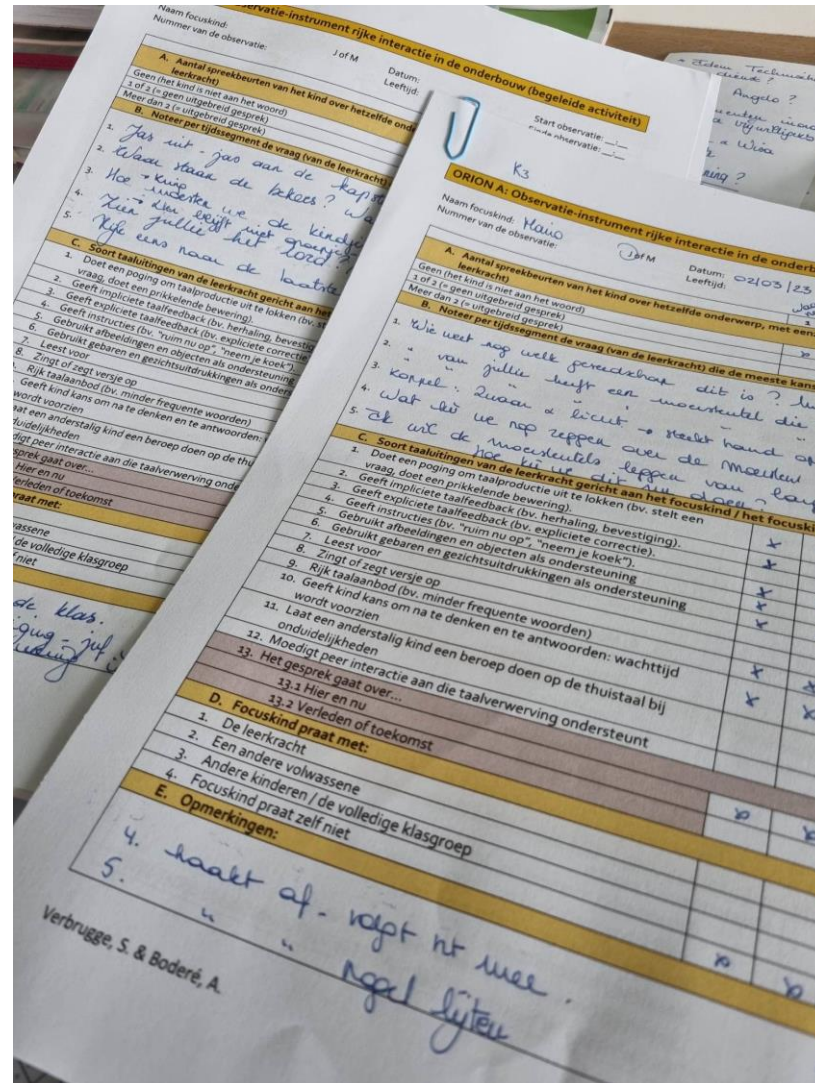 servatie-instrument rijke interactie in de onderbouw (begeleide activiteit)
Naam focuskind:
Nummer van de observatie:
J of M
Datum:
Leeftijd:
A. Aantal spreekbeurten van het kind over hetzelfde onde
leerkracht)
Start observatie: __:__
Geen (het kind is niet aan het woord)
1 of 2 (= geen uitgebreid gesprek)
Meer dan 2 (= uitgebreid gesprek)
B. Noteer per tijdssegment de vraag (van de leerkracht)
1. Jas uit - jas aan de kapst
2. Waar staan de bekers?
3. Hoe
4. Zien jullie het
5. Kijk eens naar de laatste
C. Soort taaluitingen van de leerkracht gericht aan het
1. Doet een poging om taalproductie uit te lokken (bv. st
vraag, doet een prikkelende bewering).
2. Geeft impliciete taalfeedback (bv. herhaling, bevestig
3. Geeft expliciete taalfeedback (bv. expliciete correctie
4. Geeft instructies (bv. "ruim nu op", "neem je koek").
5. Gebruikt afbeeldingen en objecten als ondersteuning
6. Gebruikt gebaren en gezichtsuitdrukkingen als onders
7. Leest voor
8. Zingt of zegt versje op
9. Rijk taalaanbod (bv. minder frequente woorden)
Geeft kind kans om na te denken en te antwoorden:
wordt voorzien
aat een anderstalig kind een beroep doen op de thu
duidelijkheden
digt peer interactie aan die taalverwerving onde
sprek gaat over...
Hier en nu
erleden of toekomst
raat met:
assene
de volledige klasgroep
niet
de klas.
juf
Angelo ?
Wisa
K3
ORION A: Observatie-instrument rijke interactie in de onderb
Naam focuskind:
Nummer van de observatie:
J of M
Datum: 02/03/23
Leeftijd:
A. Aantal spreekbeurten van het kind over hetzelfde onderwerp, met een
leerkracht)
Geen (het kind is niet aan het woord)
1 of 2 (= geen uitgebreid gesprek)
Meer dan 2 (= uitgebreid gesprek)
B. Noteer per tijdssegment de vraag (van de leerkracht) die de meeste kans
1. Wie weet nog welk gereedschap dit is ?
2. " van jullie heeft een moersleutel die
3. Koppel : zwaar & licht → steekt hand op
4. Wat kn we nog zeggen over de moersleut
5. Ik wil de moersleutels leggen van
Hoe kn we dit doen ?
C. Soort taaluitingen van de leerkracht gericht aan het focuskind / het focuski
1. Doet een poging om taalproductie uit te lokken (bv. stelt een
vraag, doet een prikkelende bewering).
2. Geeft impliciete taalfeedback (bv. herhaling, bevestiging).
3. Geeft expliciete taalfeedback (bv. expliciete correctie).
4. Geeft instructies (bv. "ruim nu op", "neem je koek").
5. Gebruikt afbeeldingen en objecten als ondersteuning
6. Gebruikt gebaren en gezichtsuitdrukkingen als ondersteuning
7. Leest voor
8. Zingt of zegt versje op
9. Rijk taalaanbod (bv. minder frequente woorden)
10. Geeft kind kans om na te denken en te antwoorden: wachttijd
wordt voorzien
11. Laat een anderstalig kind een beroep doen op de thuistaal bij
onduidelijkheden
12. Moedigt peer interactie aan die taalverwerving ondersteunt
13. Het gesprek gaat over...
13.1 Hier en nu
13.2 Verleden of toekomst
D. Focuskind praat met:
1. De leerkracht
2. Een andere volwassene
3. Andere kinderen / de volledige klasgroep
4. Focuskind praat zelf niet
E. Opmerkingen:
4. haakt af - volgt nt mee.
5. " "
Verbrugge, S. & Boderé, A.